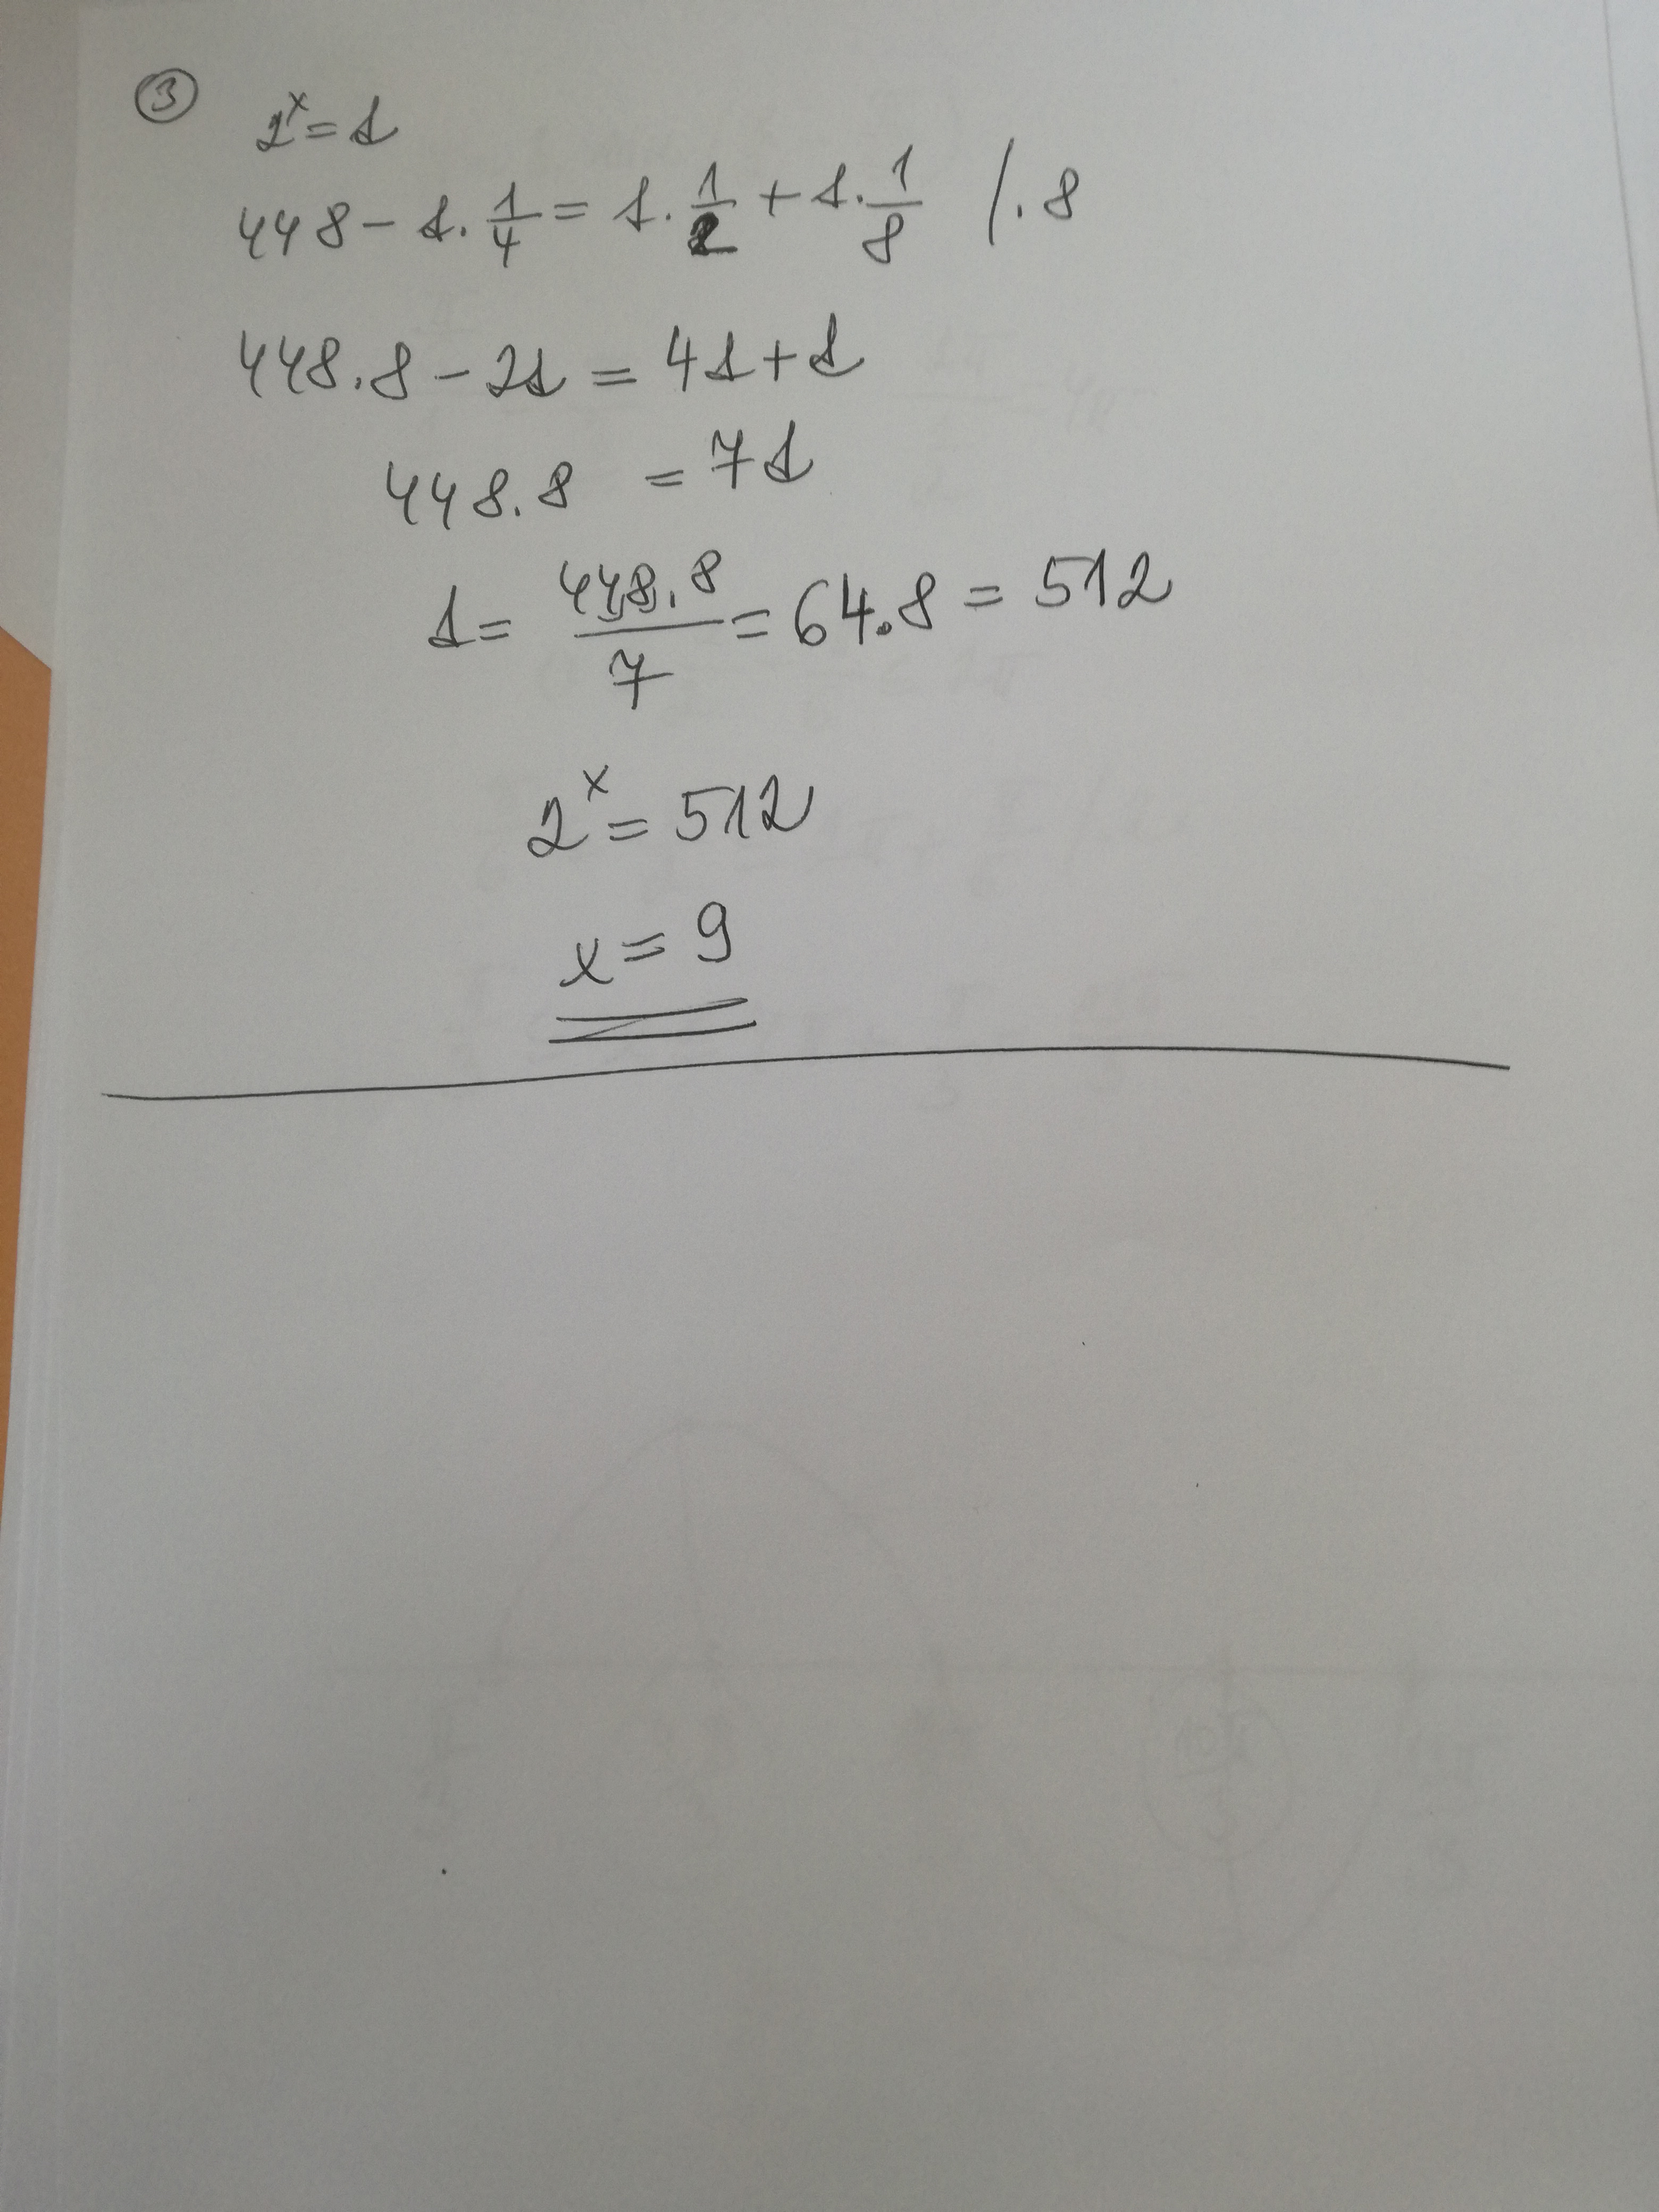 ③
2^x = s
448 - s · 1/4 = s · 1/2 + s · 1/8 /· 8
448 · 8 - 2s = 4s + s
448 · 8 = 7s
s = 448 · 8 / 7 = 64 · 8 = 512
2^x = 512
x = 9